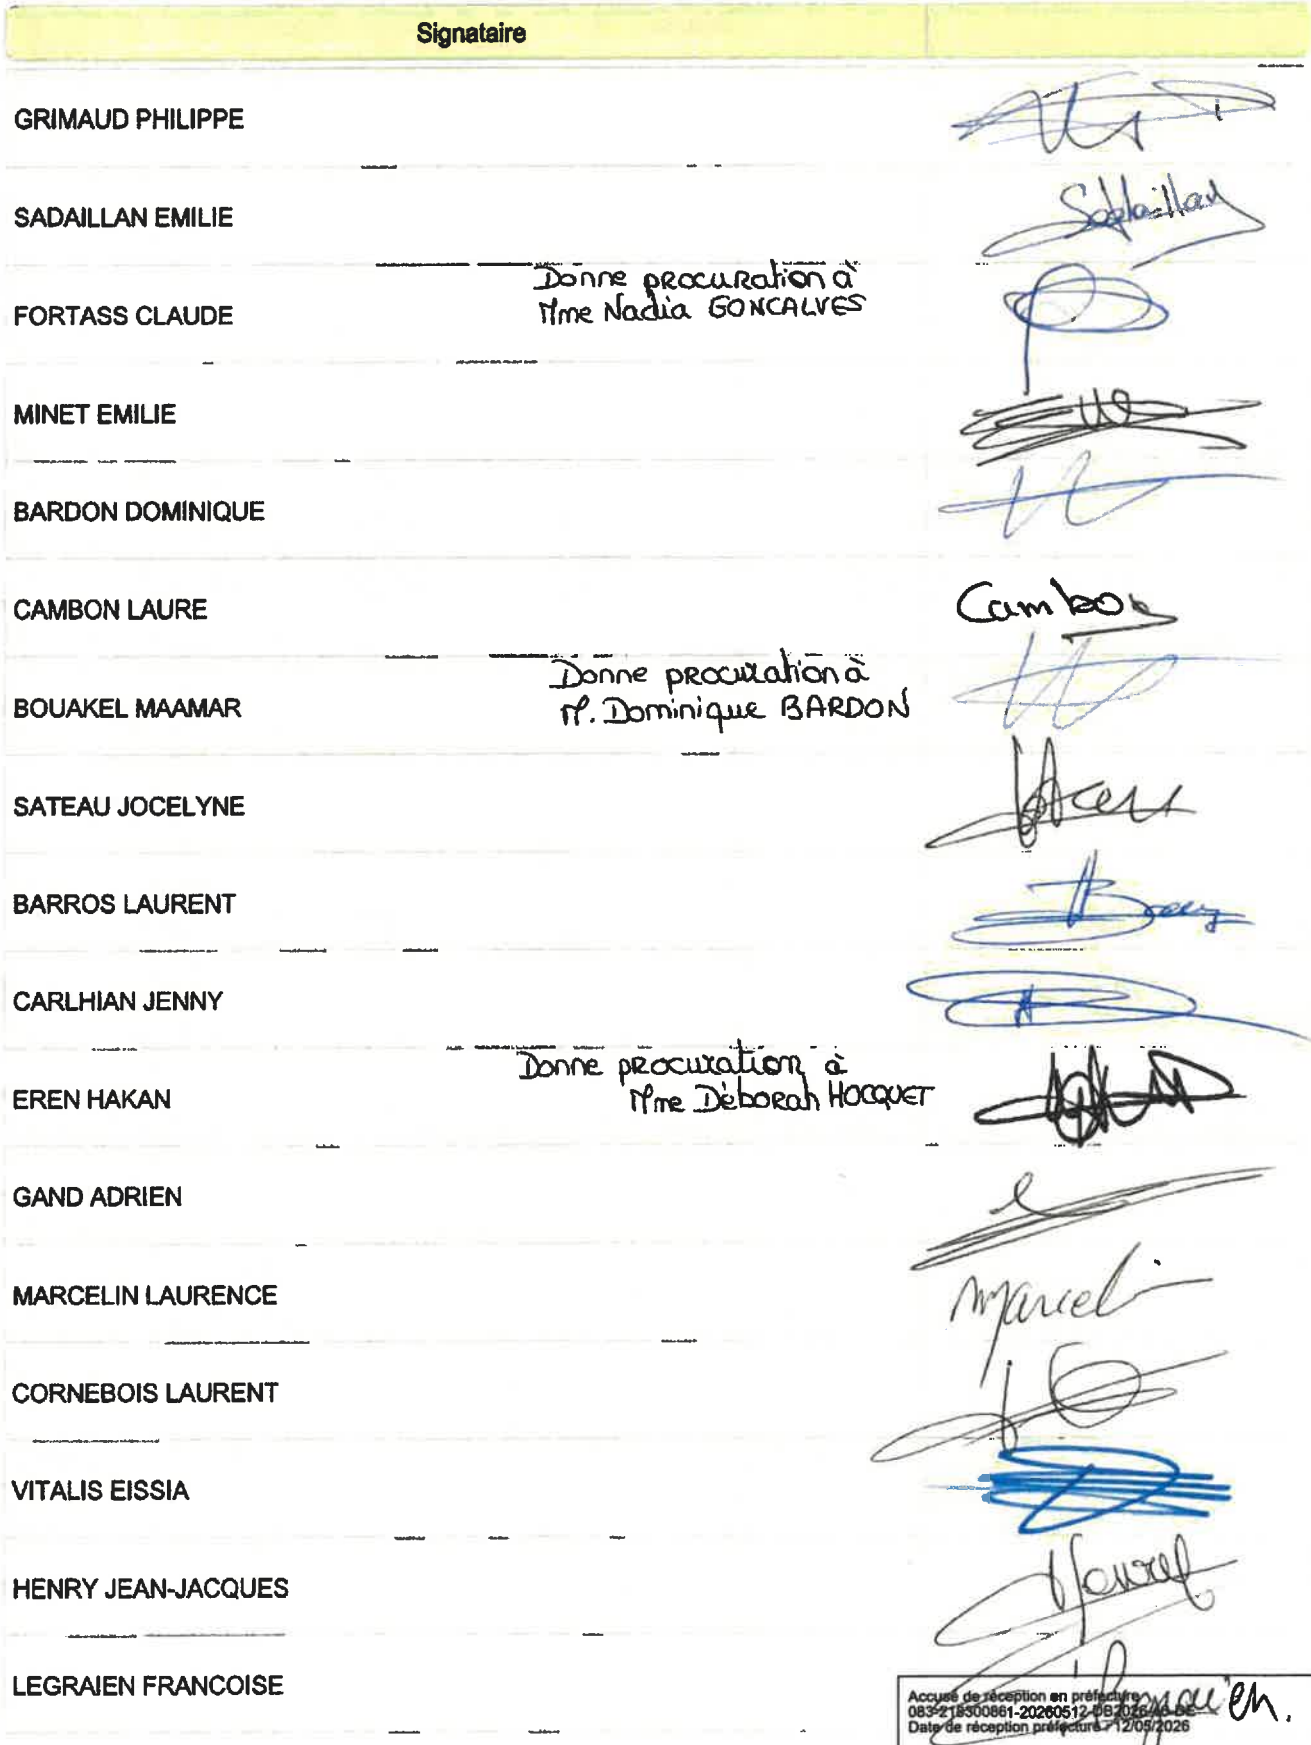 Signataire
GRIMAUD PHILIPPE
SADAILLAN EMILIE
Sadaillan
Donne procuration à
Mme Nadia GONCALVES
FORTASS CLAUDE
MINET EMILIE
BARDON DOMINIQUE
CAMBON LAURE
Cambon
Donne procuration à
M. Dominique BARDON
BOUAKEL MAAMAR
SATEAU JOCELYNE
BARROS LAURENT
CARLHIAN JENNY
Donne procuration à
Mme Déborah HOCQUET
EREN HAKAN
GAND ADRIEN
MARCELIN LAURENCE
Marceli
CORNEBOIS LAURENT
VITALIS EISSIA
HENRY JEAN-JACQUES
LEGRAIEN FRANCOISE
Accusé de réception en préfecture
083-218300861-20260512-DB2026
Date de réception préfecture : 12/05/2026